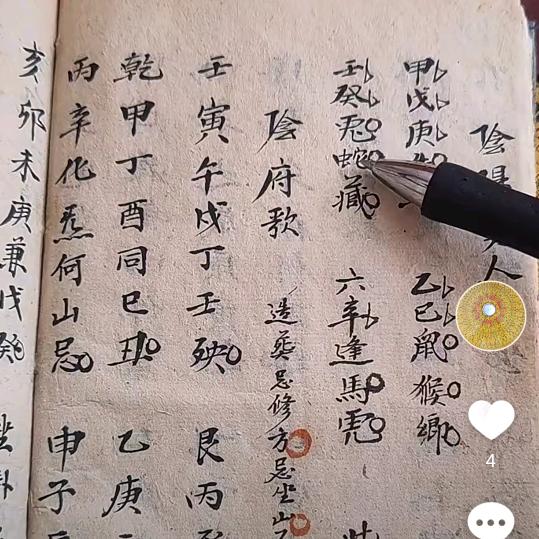 陰陽
甲戊庚
乙巳鼠猴鄉
壬癸兎蛇藏
六辛逢馬虎
陰府歌
造葬忌修方忌坐山
壬寅午戌丁壬殃
艮丙
乾甲丁酉同巳丑
乙庚
丙辛化炁何山忌
申子
亥卯未庚兼戊癸
卦
4